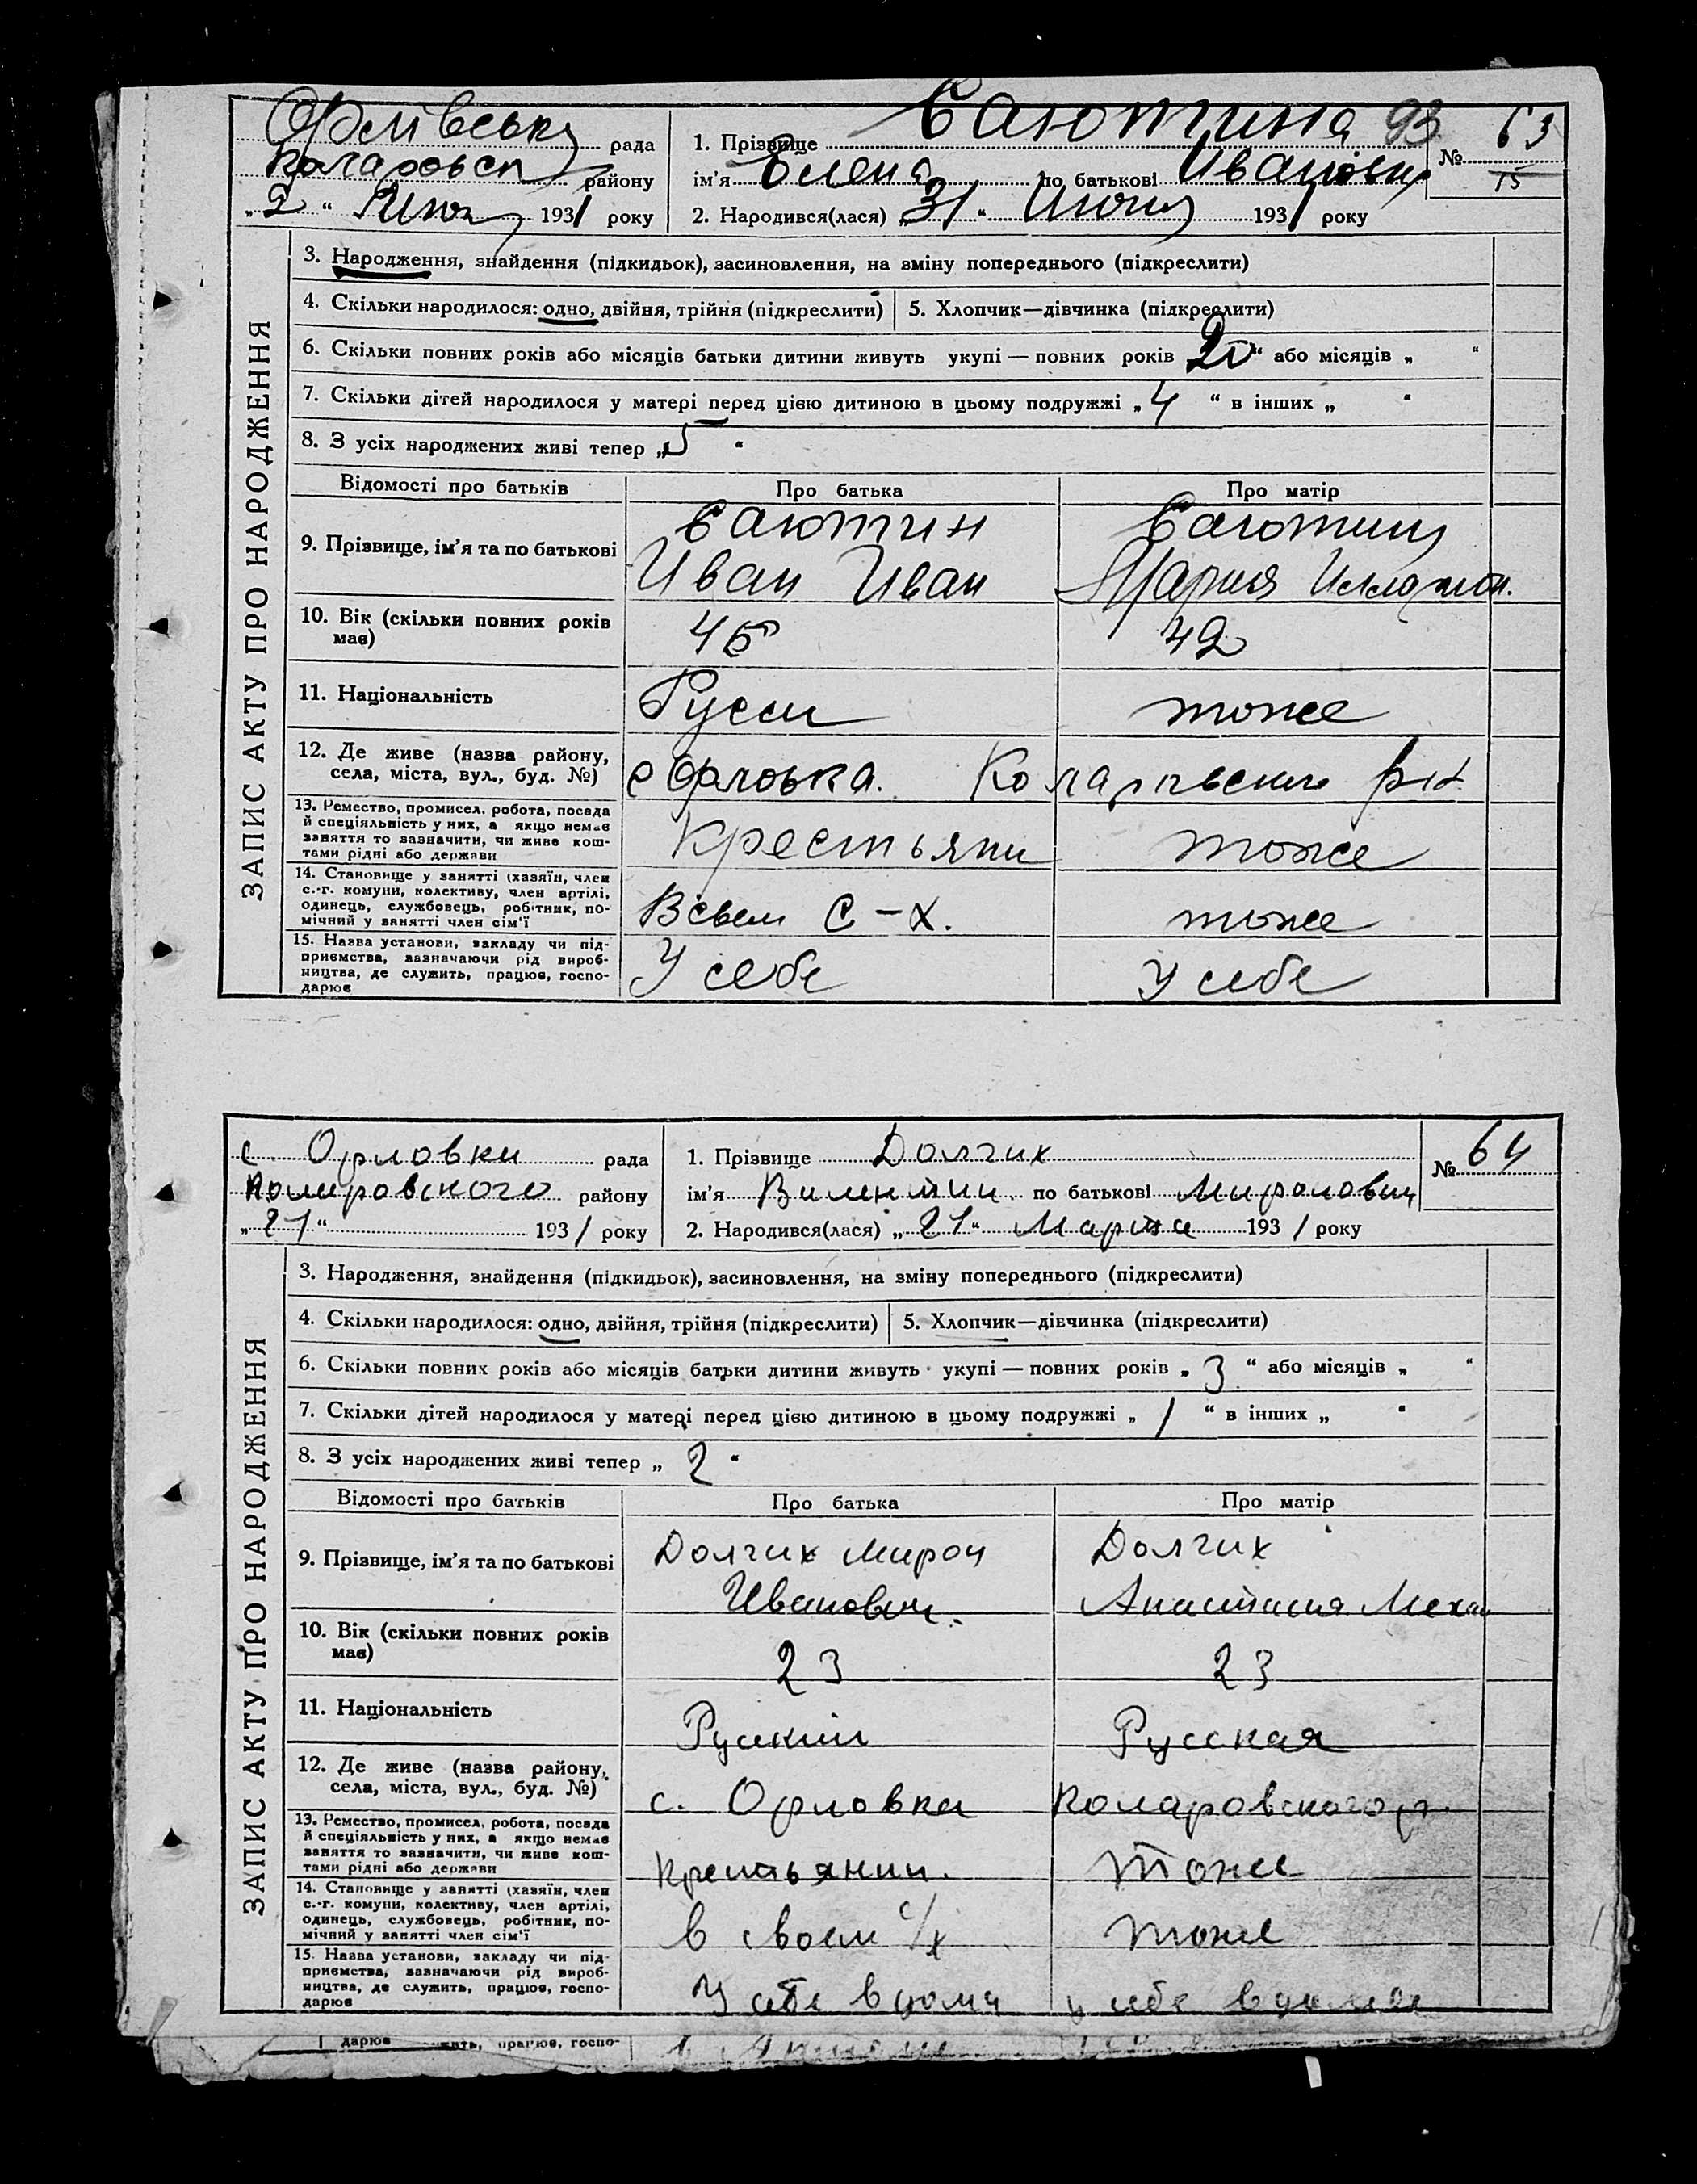 Орлівськ рада
Коларовск району
„2“ 1931 року
1. Прізвище Саютина 93
ім'я Елена по батькові Ивановн
2. Народився(лася) „31“ 1931 року
№ 63
15
ЗАПИС АКТУ ПРО НАРОДЖЕННЯ
3. Народження, знайдення (підкидьок), засиновлення, на зміну попереднього (підкреслити)
4. Скільки народилося: одно, двійня, трійня (підкреслити)
5. Хлопчик—дівчинка (підкреслити)
6. Скільки повних років або місяців батьки дитини живуть укупі — повних років „20“ або місяців „ “
7. Скільки дітей народилося у матері перед цією дитиною в цьому подружжі „4“ в інших „ “
8. З усіх народжених живі тепер „5“
Відомості про батьків Про батька Про матір
9. Прізвище, ім'я та по батькові
Саютин
Иван Иван
Саютин
Мария
10. Вік (скільки повних років
має)
45 42
11. Національність Русск тоже
12. Де живе (назва району,
села, міста, вул., буд. №)
с Орловка. Коларовского р-н
13. Ремество, промисел, робота, посада
й спеціяльність у них, а якщо немає
заняття то зазначити, чи живе кош-
тами рідні або держави
Крестьянин тоже
14. Становище у занятті (хазяїн, член
с.-г. комуни, колективу, член артілі,
одинець, службовець, робітник, по-
мічний у занятті член сім'ї
В свем С-Х. тоже
15. Назва установи, закладу чи під-
приємства, зазначаючи рід вироб-
ництва, де служить, працює, госпо-
дарює
У себе У себе
с. Орловки рада
Коларовского району
„21“ 1931 року
1. Прізвище Долгих
ім'я Вилентин по батькові Миронович
2. Народився(лася) „21“ Марта 1931 року
№ 64
ЗАПИС АКТУ ПРО НАРОДЖЕННЯ
3. Народження, знайдення (підкидьок), засиновлення, на зміну попереднього (підкреслити)
4. Скільки народилося: одно, двійня, трійня (підкреслити)
5. Хлопчик—дівчинка (підкреслити)
6. Скільки повних років або місяців батьки дитини живуть укупі — повних років „3“ або місяців „ “
7. Скільки дітей народилося у матері перед цією дитиною в цьому подружжі „1“ в інших „ “
8. З усіх народжених живі тепер „2“
Відомості про батьків Про батька Про матір
9. Прізвище, ім'я та по батькові
Долгих Мирон
Иванович.
Долгих
Анастасия Миха
10. Вік (скільки повних років
має)
23 23
11. Національність Руский Русская
12. Де живе (назва району,
села, міста, вул., буд. №)
с. Орловка Коларовского р.
13. Ремество, промисел, робота, посада
й спеціяльність у них, а якщо немає
заняття то зазначити, чи живе кош-
тами рідні або держави
Крестьянин. Тоже
14. Становище у занятті (хазяїн, член
с.-г. комуни, колективу, член артілі,
одинець, службовець, робітник, по-
мічний у занятті член сім'ї
в своем с/х тоже
15. Назва установи, закладу чи під-
приємства, зазначаючи рід вироб-
ництва, де служить, працює, госпо-
дарює
У себе в дому у себе в доме
дарює жить, працює, госпо-